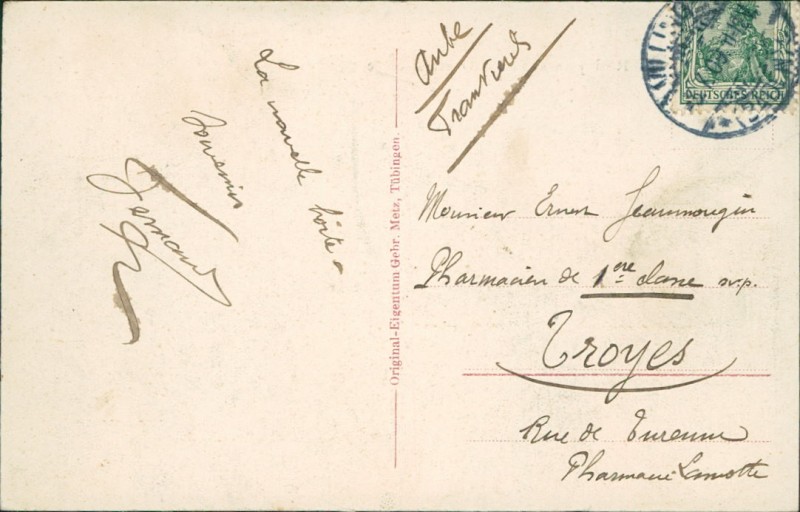 La nouvelle boîte
Souvenirs
Fernand
Original-Eigentum Gebr. Metz, Tübingen.
Aube
DEUTSCHES REICH
Monsieur Ernest Jeanmougin
Pharmacien de 1ère classe sv.p.
Troyes
Rue de Turenne
Pharmacie Lamotte